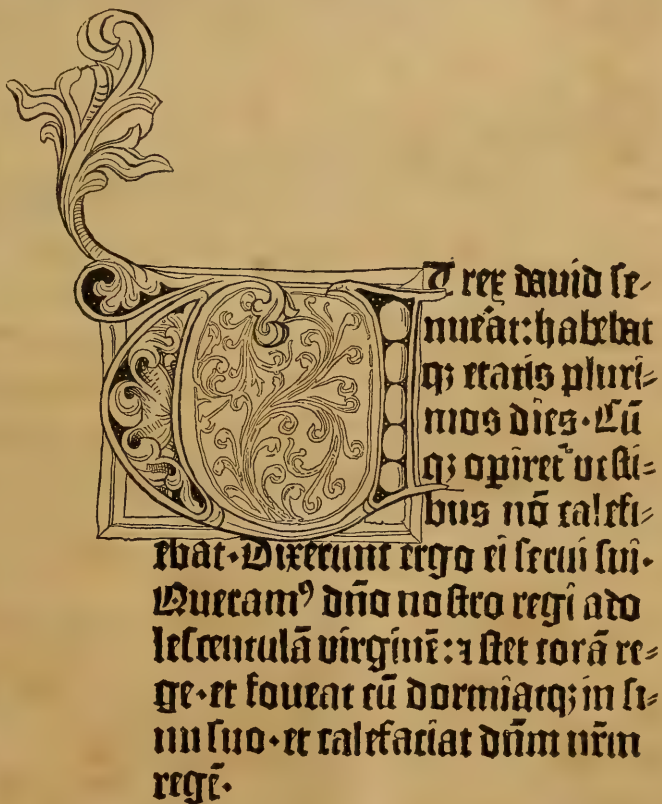 ET rex dauid ſe⸗
nue͛at:habebat
qꝫ etatis pluri⸗
mos dies·Cū
qꝫ oꝑiret᷑ veſti⸗
bus nō calefi⸗
ebat·Dixerunt ergo ei ſerui ſui·
Queramꝰ dn̄o noſtro regi ado
leſcentulā virginē:⁊ ſtet corā re⸗
ge·et foueat eū dormiatqꝫ in ſi⸗
nu ſuo·et calefaciat dn̄m nr̄m
regē·